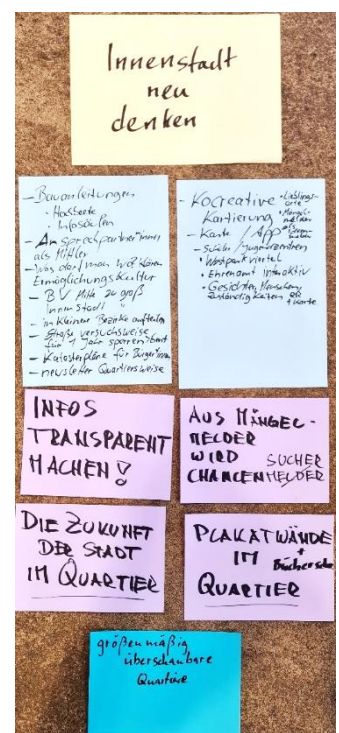 Innenstadt
neu
denken
- Bauanleitungen
• Hochbeete
• Infosäulen
- Ansprechpartner*innen
als Mittler
- Was darf man wo? klären
Ermöglichungskultur
- BV Mitte zu groß
Innenstadt "
- in kleinere Bezirke aufteilen
- Straße versuchsweise
für 1 Jahr sperren
- Katasterpläne für Bürger*innen
- newsletter Quartiersweise
- Kocreative
Kartierung
• Lieblings-
orte
• Mängel-
melder
- Karte / App
- Schüler / Jugendzentren
• Westparkviertel
• Ehrenamt interaktiv
• Gesichter, Menschen,
Zuständigkeiten
Karte
INFOS
TRANSPARENT
MACHEN!
AUS MÄNGEL-
MELDER
WIRD
CHANCENMELDER
SUCHER
DIE ZUKUNFT
DER STADT
IM QUARTIER
PLAKATWÄNDE
IM +
QUARTIER
größenmäßig
überschaubare
Quartiere